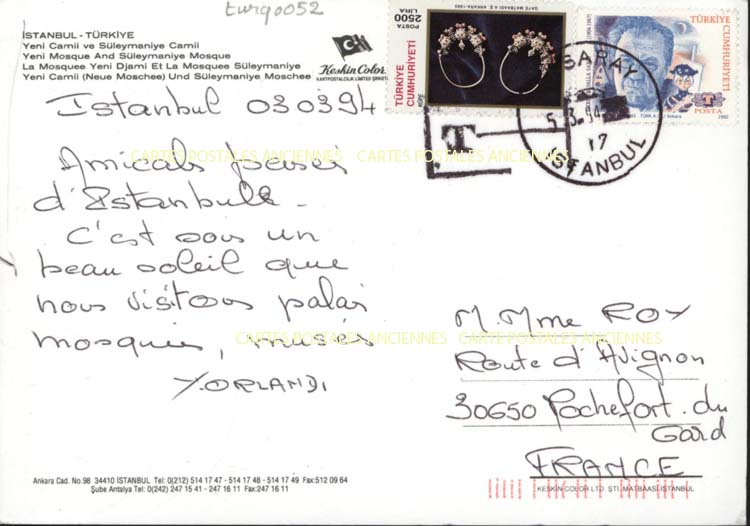 turq0052
İSTANBUL - TÜRKİYE
Yeni Camii ve Süleymaniye Camii
Yeni Mosque And Süleymaniye Mosque
La Mosquee Yeni Djami Et La Mosquee Süleymaniye
Yeni Camii (Neue Moschee) Und Süleymaniye Moschee
Keskin Color
KARTPOSTALCILIK LİMİTED ŞİRKETİ
Istanbul 030394
Amicals pensées
d'Istanbull.
C'est sous un
beau soleil que
nous visitons palai
mosquées, musés
Y.ORLANDI
CARTES POSTALES ANCIENNES CARTES POSTALES ANCIENNES
CARTES POSTALES ANCIENNES CARTES POSTALES ANCIENNES
TÜRKİYE
CUMHURİYETİ
POSTA
2500
LİRA
TÜRKİYE
CUMHURİYETİ
POSTA
1992
T
SARAY
5.3.94
17
İSTANBUL
M. Mme ROY
Route d'Avignon
30650 Rochefort.du
Gard
FRANCE
Ankara Cad. No.98 34410 İSTANBUL Tel: 0(212) 514 17 47 - 514 17 48 - 514 17 49 Fax:512 09 64
Şube Antalya Tel: 0(242) 247 15 41 - 247 16 11 Fax:247 16 11
KESKİN COLOR LTD. ŞTİ. MATBAASI-İSTANBUL